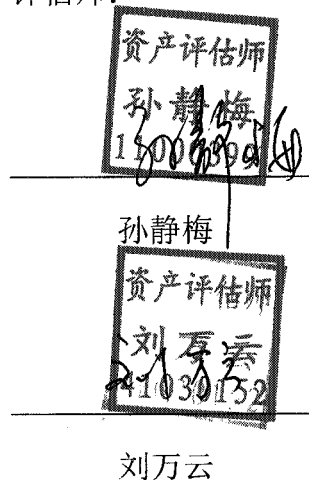 评估师：
资产评估师
孙静梅
孙静梅
资产评估师
刘万云
41030152
刘万云